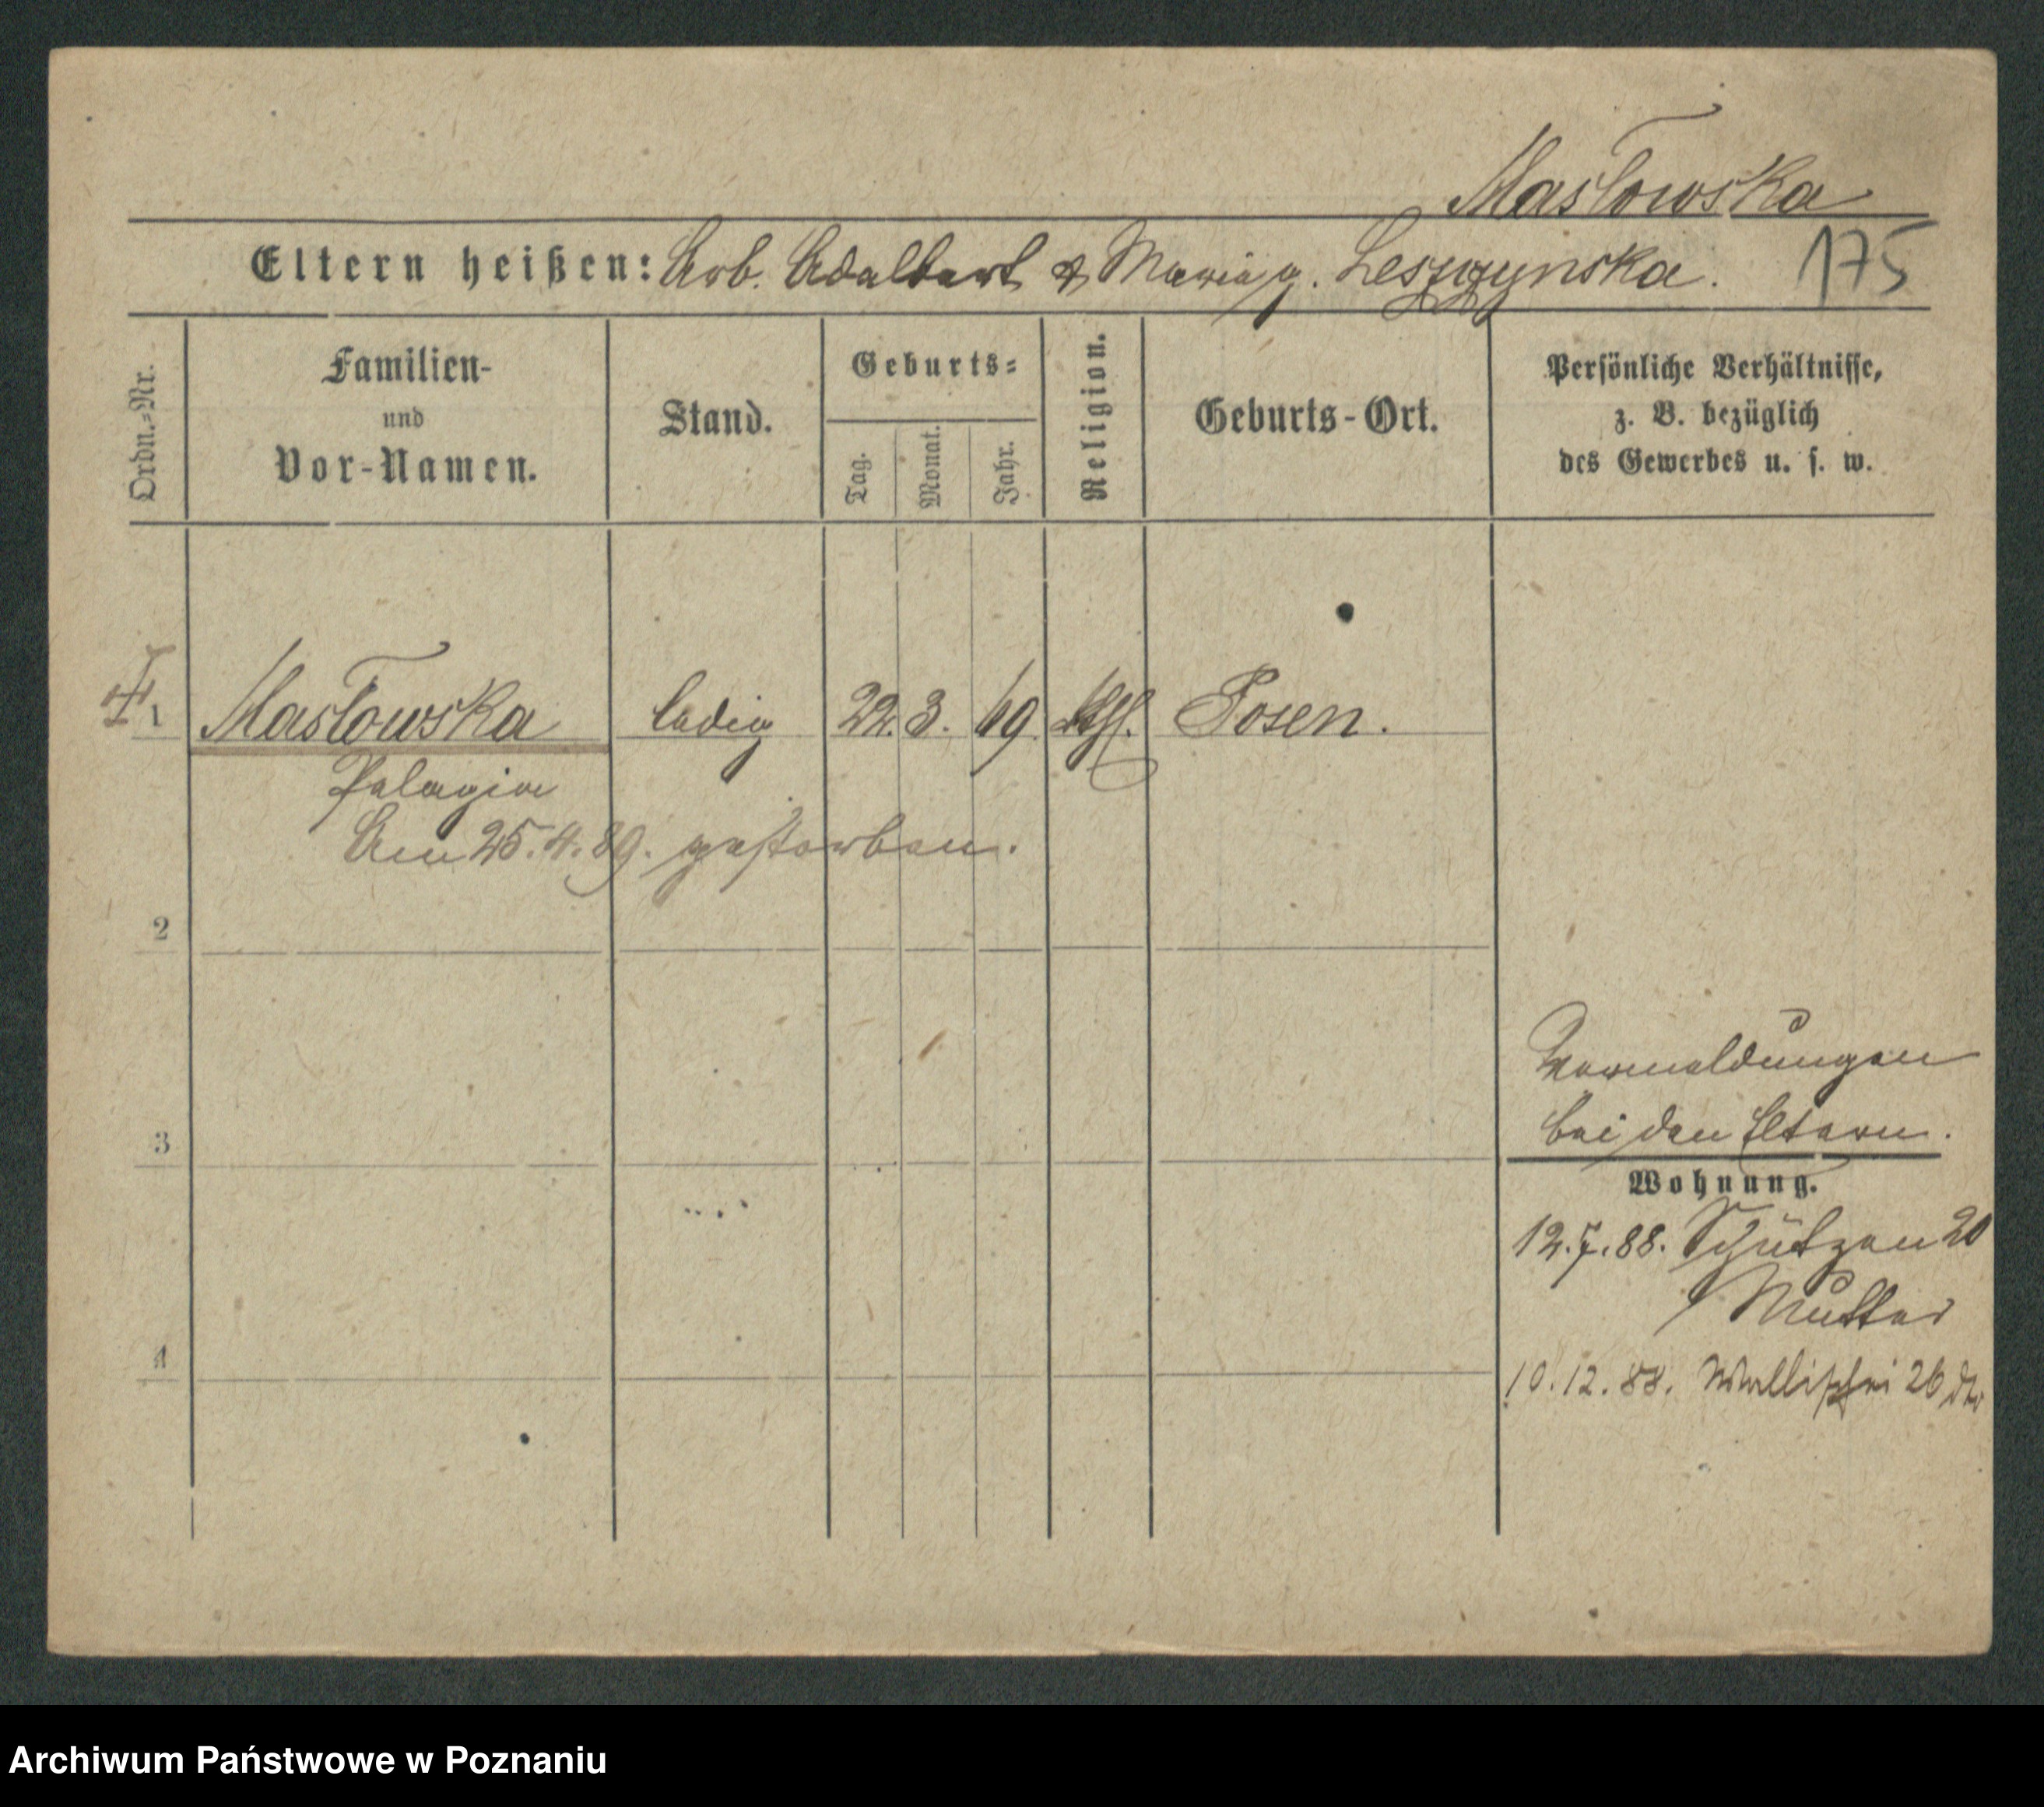 Masłowska
Eltern heißen: Arb. Adalbert & Maria g. Leszczynska.
175
Ordn.-Nr.
Familien-
und
Vor-Namen.
Stand.
Geburts-
Tag.
Monat.
Jahr.
Religion.
Geburts-Ort.
Persönliche Verhältnisse,
z. B. bezüglich
des Gewerbes u. s. w.
1 Masłowska ledig 22. 3. 69. kth. Posen.
Pelagia
Am 25.4.89. gestorben.
2
3
4
Vormeldungen
bei den Eltern.
Wohnung.
12.7.88. Schützen 20
Mutter
10.12.88. Wallischei 26
Archiwum Państwowe w Poznaniu